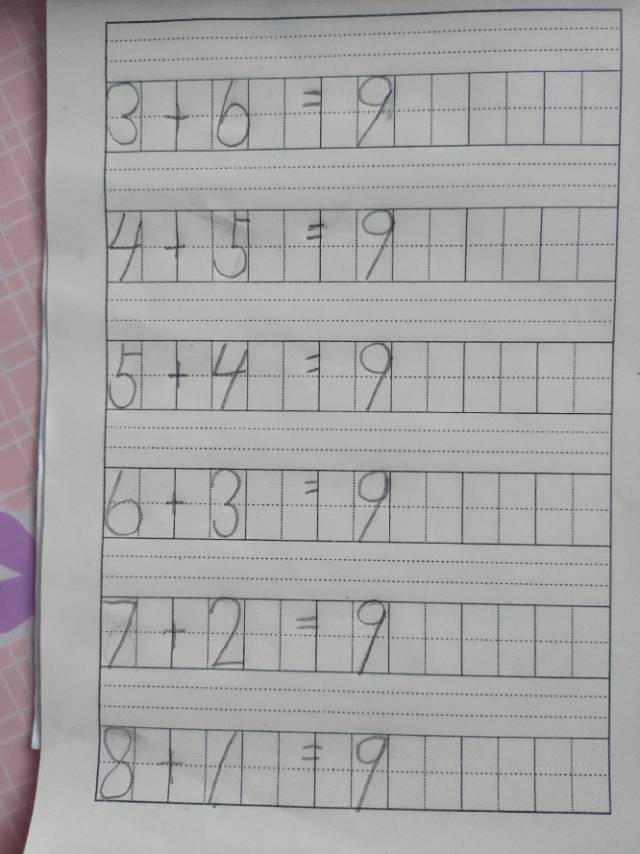 3 + 6 = 9
4 + 5 = 9
5 + 4 = 9
6 + 3 = 9
7 + 2 = 9
8 + 1 = 9